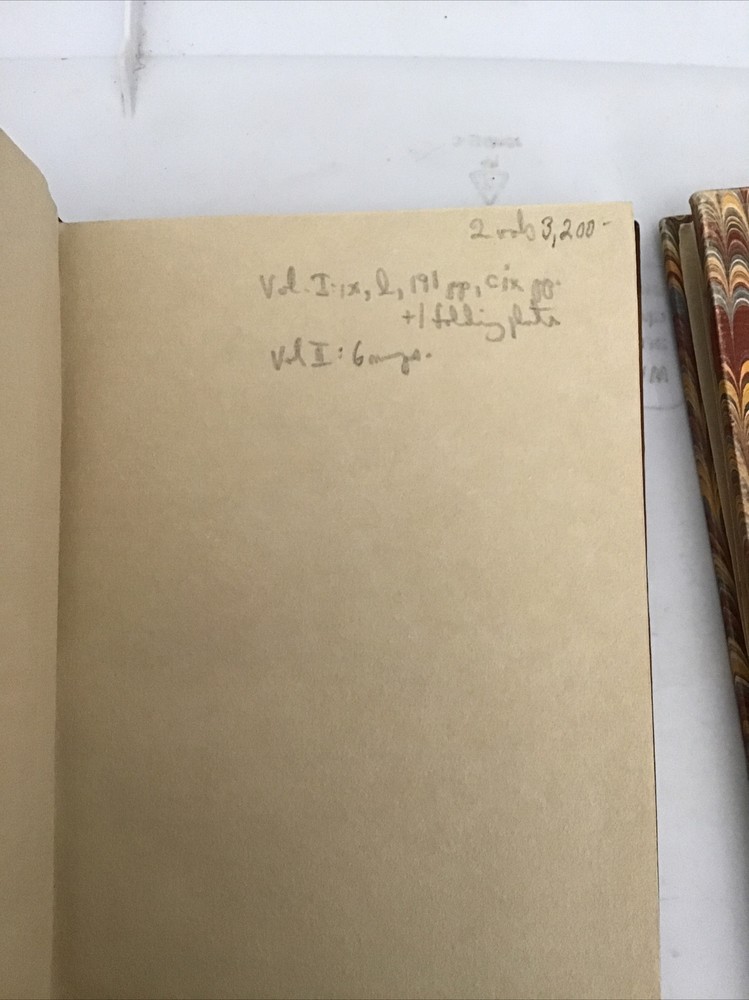 2 vols 3,200-
Vol. I: ix, l, 191 pp, cix pp.
+1 folding plate
Vol II: 6 maps.